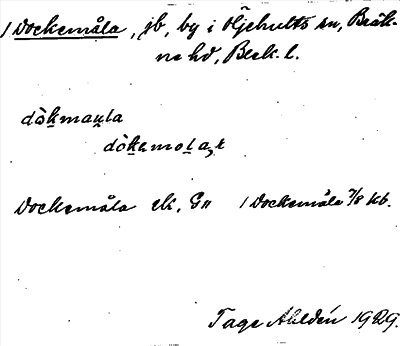 1 Dockemåla, jb, by i Öljehults sn, Bräk-
ne hd, Blek. l.
dòkmaula
dòkamola,t
Dockemåla ek, G11 1 Dockemåla 7/8 kb.
Tage Ahldén 1929.